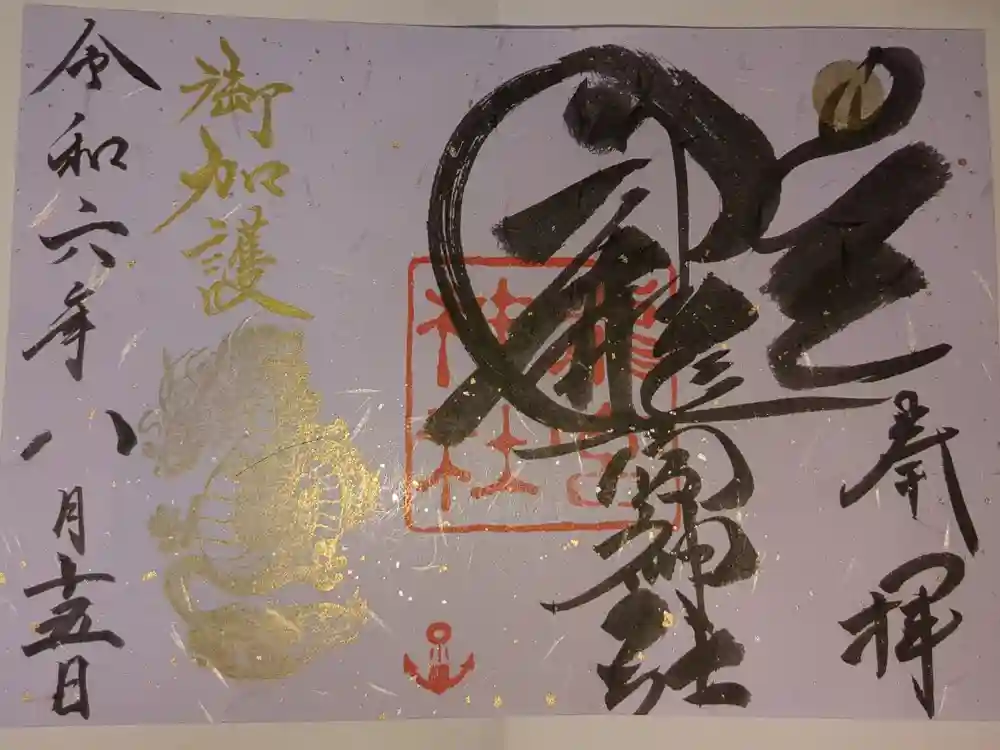 奉拝
龍宮神社
龍宮
神社
御加護
令和六年八月十五日